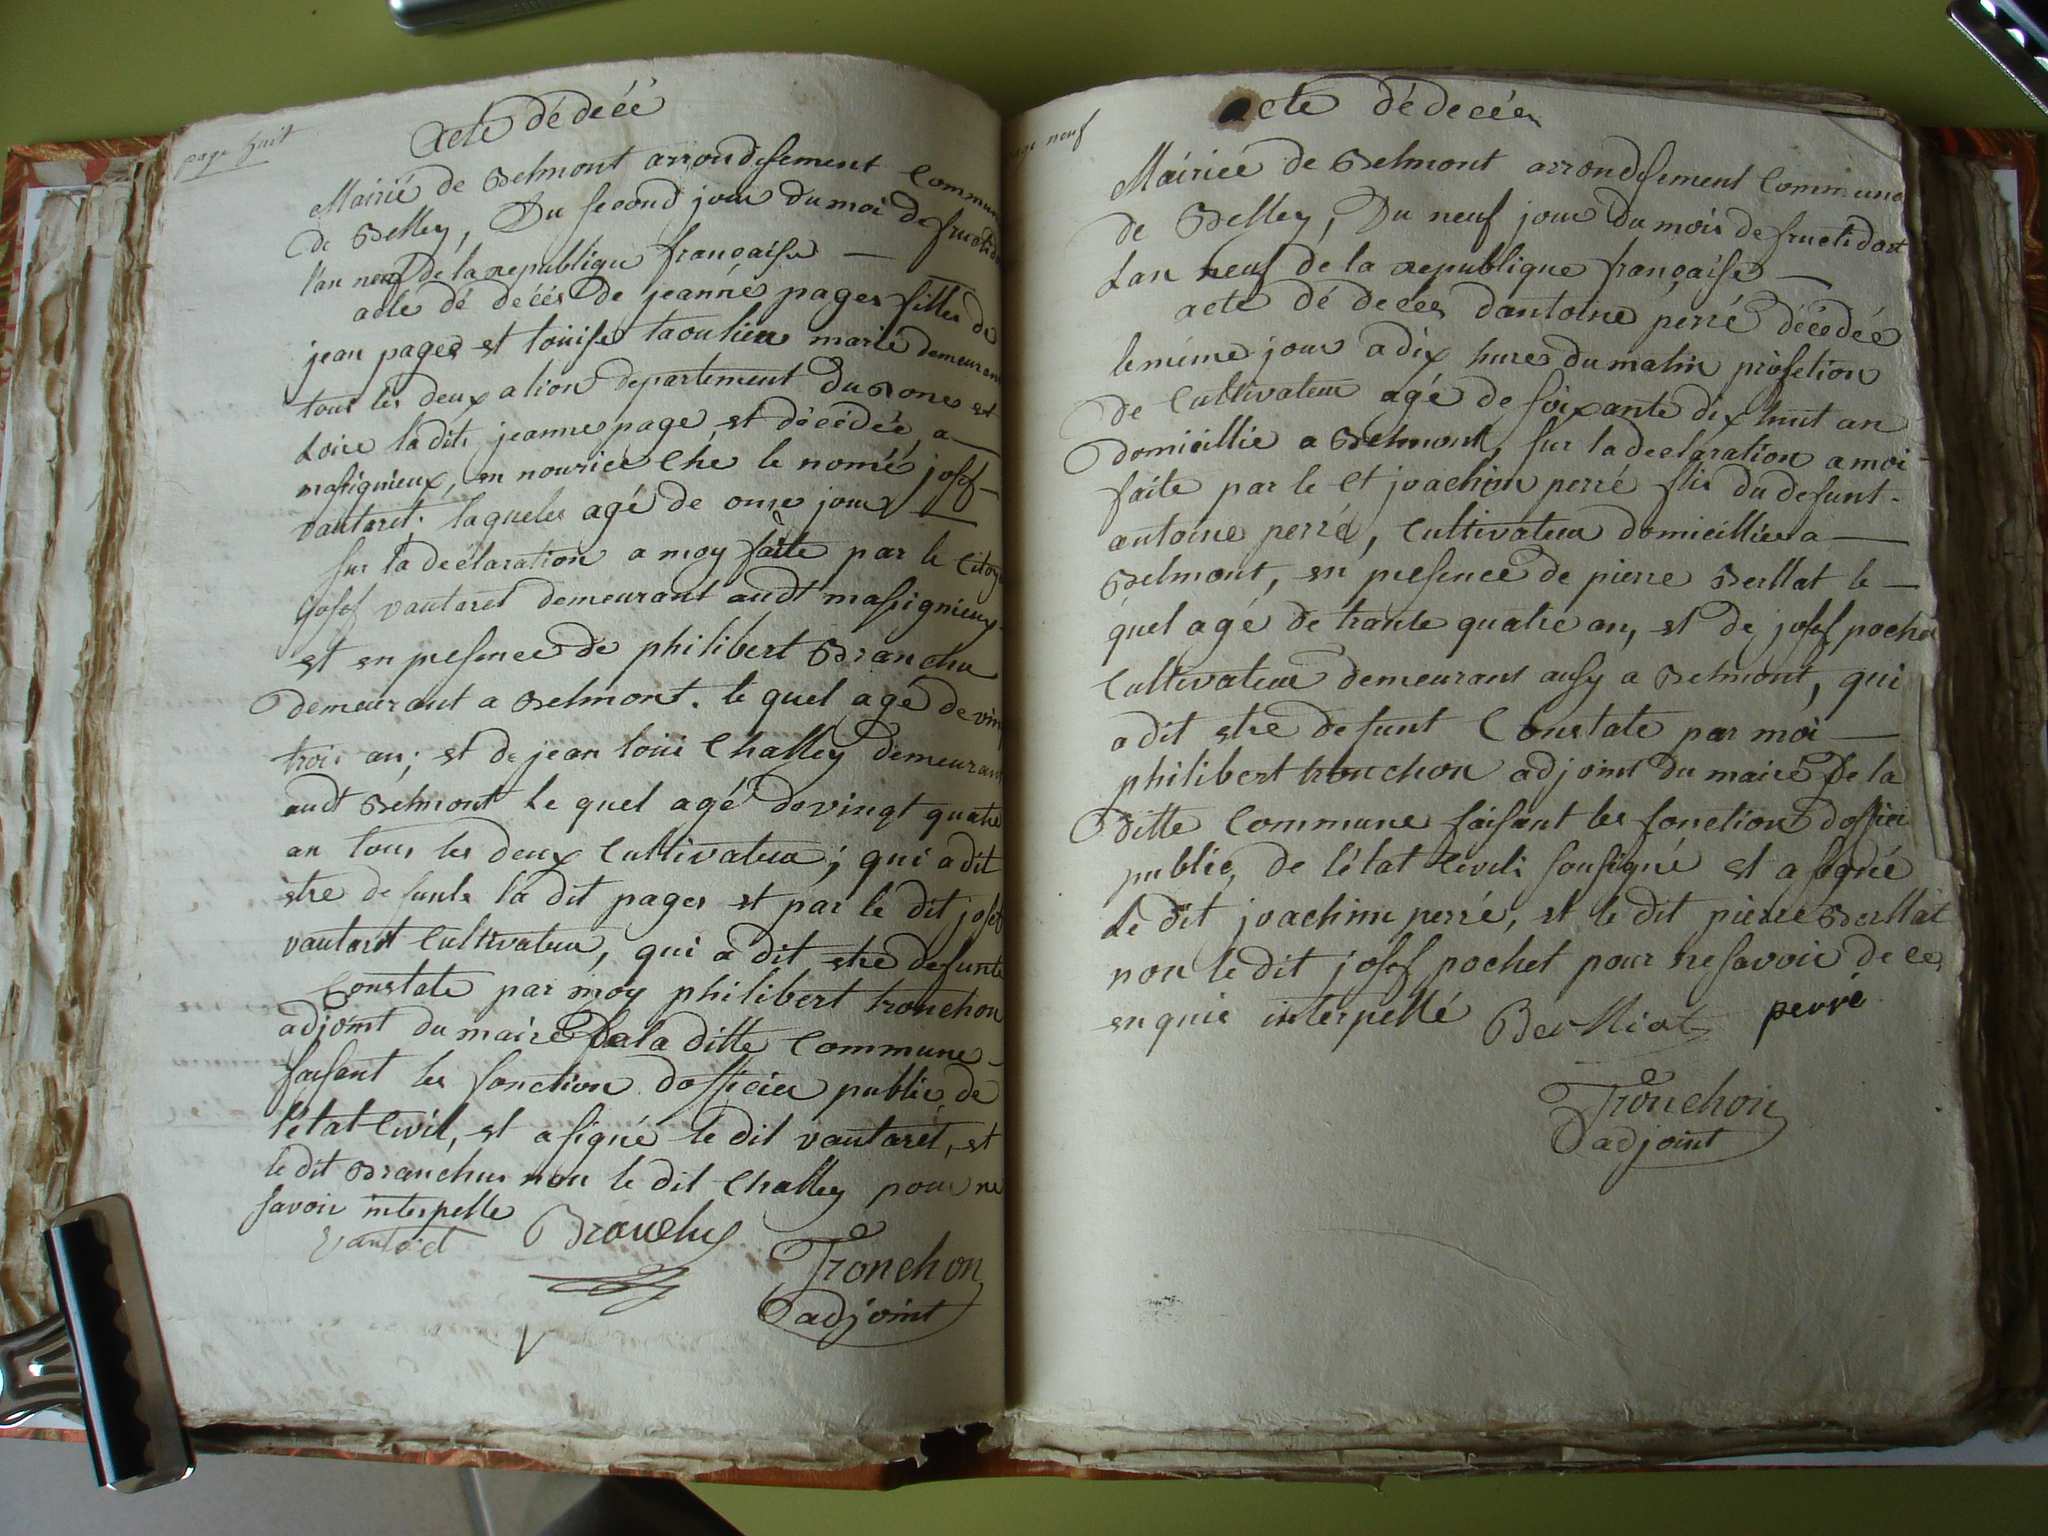 page huit
Acte dé décé
Mairié de Belmont arrondisement Commun
de Belley, Du second jour du moi de fructido
l'an neuf de la republique française
acte dé décés de jeanné pages filles de
jean pages et louise taoulieu marié demeurant
tous les deux a lion departement du Rone et
Loire la dite jeanne page, et décédée, a
masignieux, en nourice ché le nomé josef
vautaret. laqueles agé de onse jours
sur la déclaration a moy faite par le Citoy
josef vautaret demeurant audt massignieux
et en presence de philibert Branchu
demeurant a Belmont. le quel agé de vin
trois an; et de jean loui Challey demeurant
audt Belmont le quel agé de vingt quatre
an tous les deux Cultivateur; qui a dit
etre defunte la dit pages et par le dit josef
vautaret Cultivateur, qui a dit etre defunte
Constate par moy philibert tronchon
adjoint du maire de la ditte Commune
faisant les fonction dofficier public, de
l'état Civil, et a signé le dit vautaret, et
le dit Branchus non le dit Challey pour ne
savoir interpelle
Vautaret Branchu
Tronchon
adjoint
page neuf
acte dé decée
Mairiéé de Belmont arrondisement Commune
de Belley, Du neuf jour du mois de fructidort
Lan neuf de la republique française
acte dé deces dantoine perré décedée
le même jour a dix hures du matin profetion
de Cultivateur agé de soixante dix huit an
domicillié a Belmont, sur la declaration a moi
faite par le Ct joachim perré flis du defunt
antoine perré, Cultivateur domicilliés a
Belmont, en presence de pierre Berllat le
quel agé de trante quatre an, et de josef pochet
Cultivateur demeurant ausy a Belmont, qui
a dit etre defunt Constate par moi
philibert tronchon adjoint du maire de la
ditte Commune faisant les fonction doffici
public, de l'état Civili sousigné et a signé
Le dit joachim perré, et le dit pierre Berllat
non le dit josef pochet pour ne savoir de ce
enquis interpellé Berlliat perré
Tronchon
adjoint